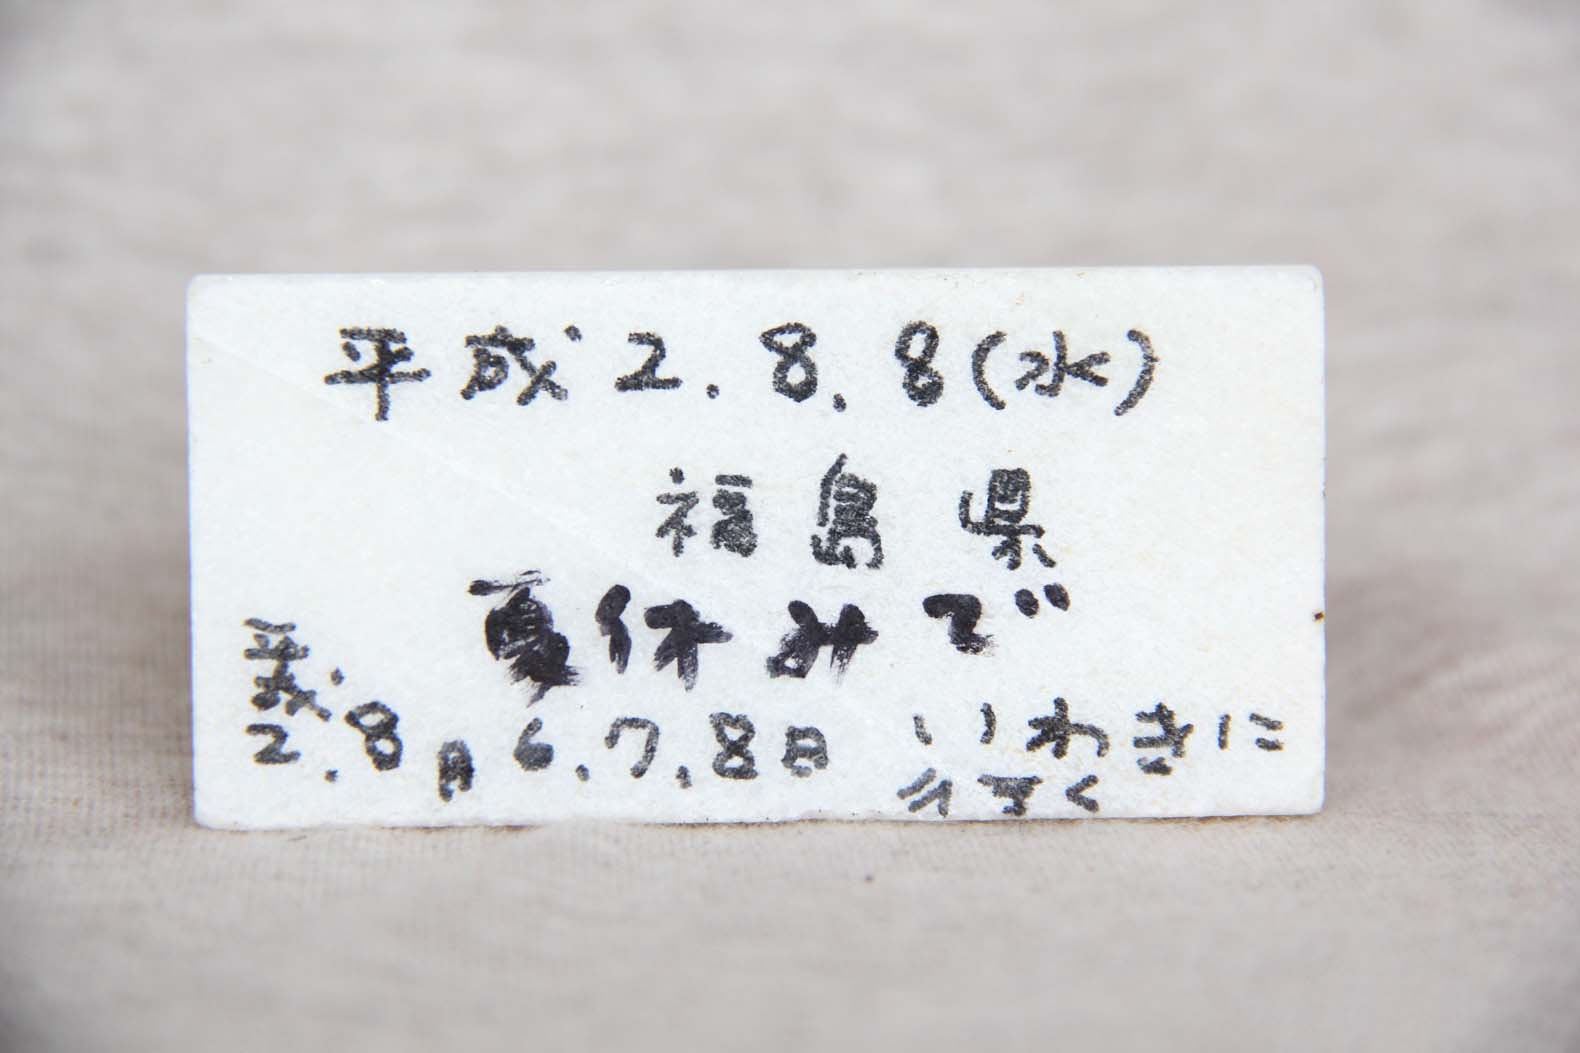 平成2.8.8(水)
福島県
夏休みで
平成2.8月6.7.8日 いわきに
行く